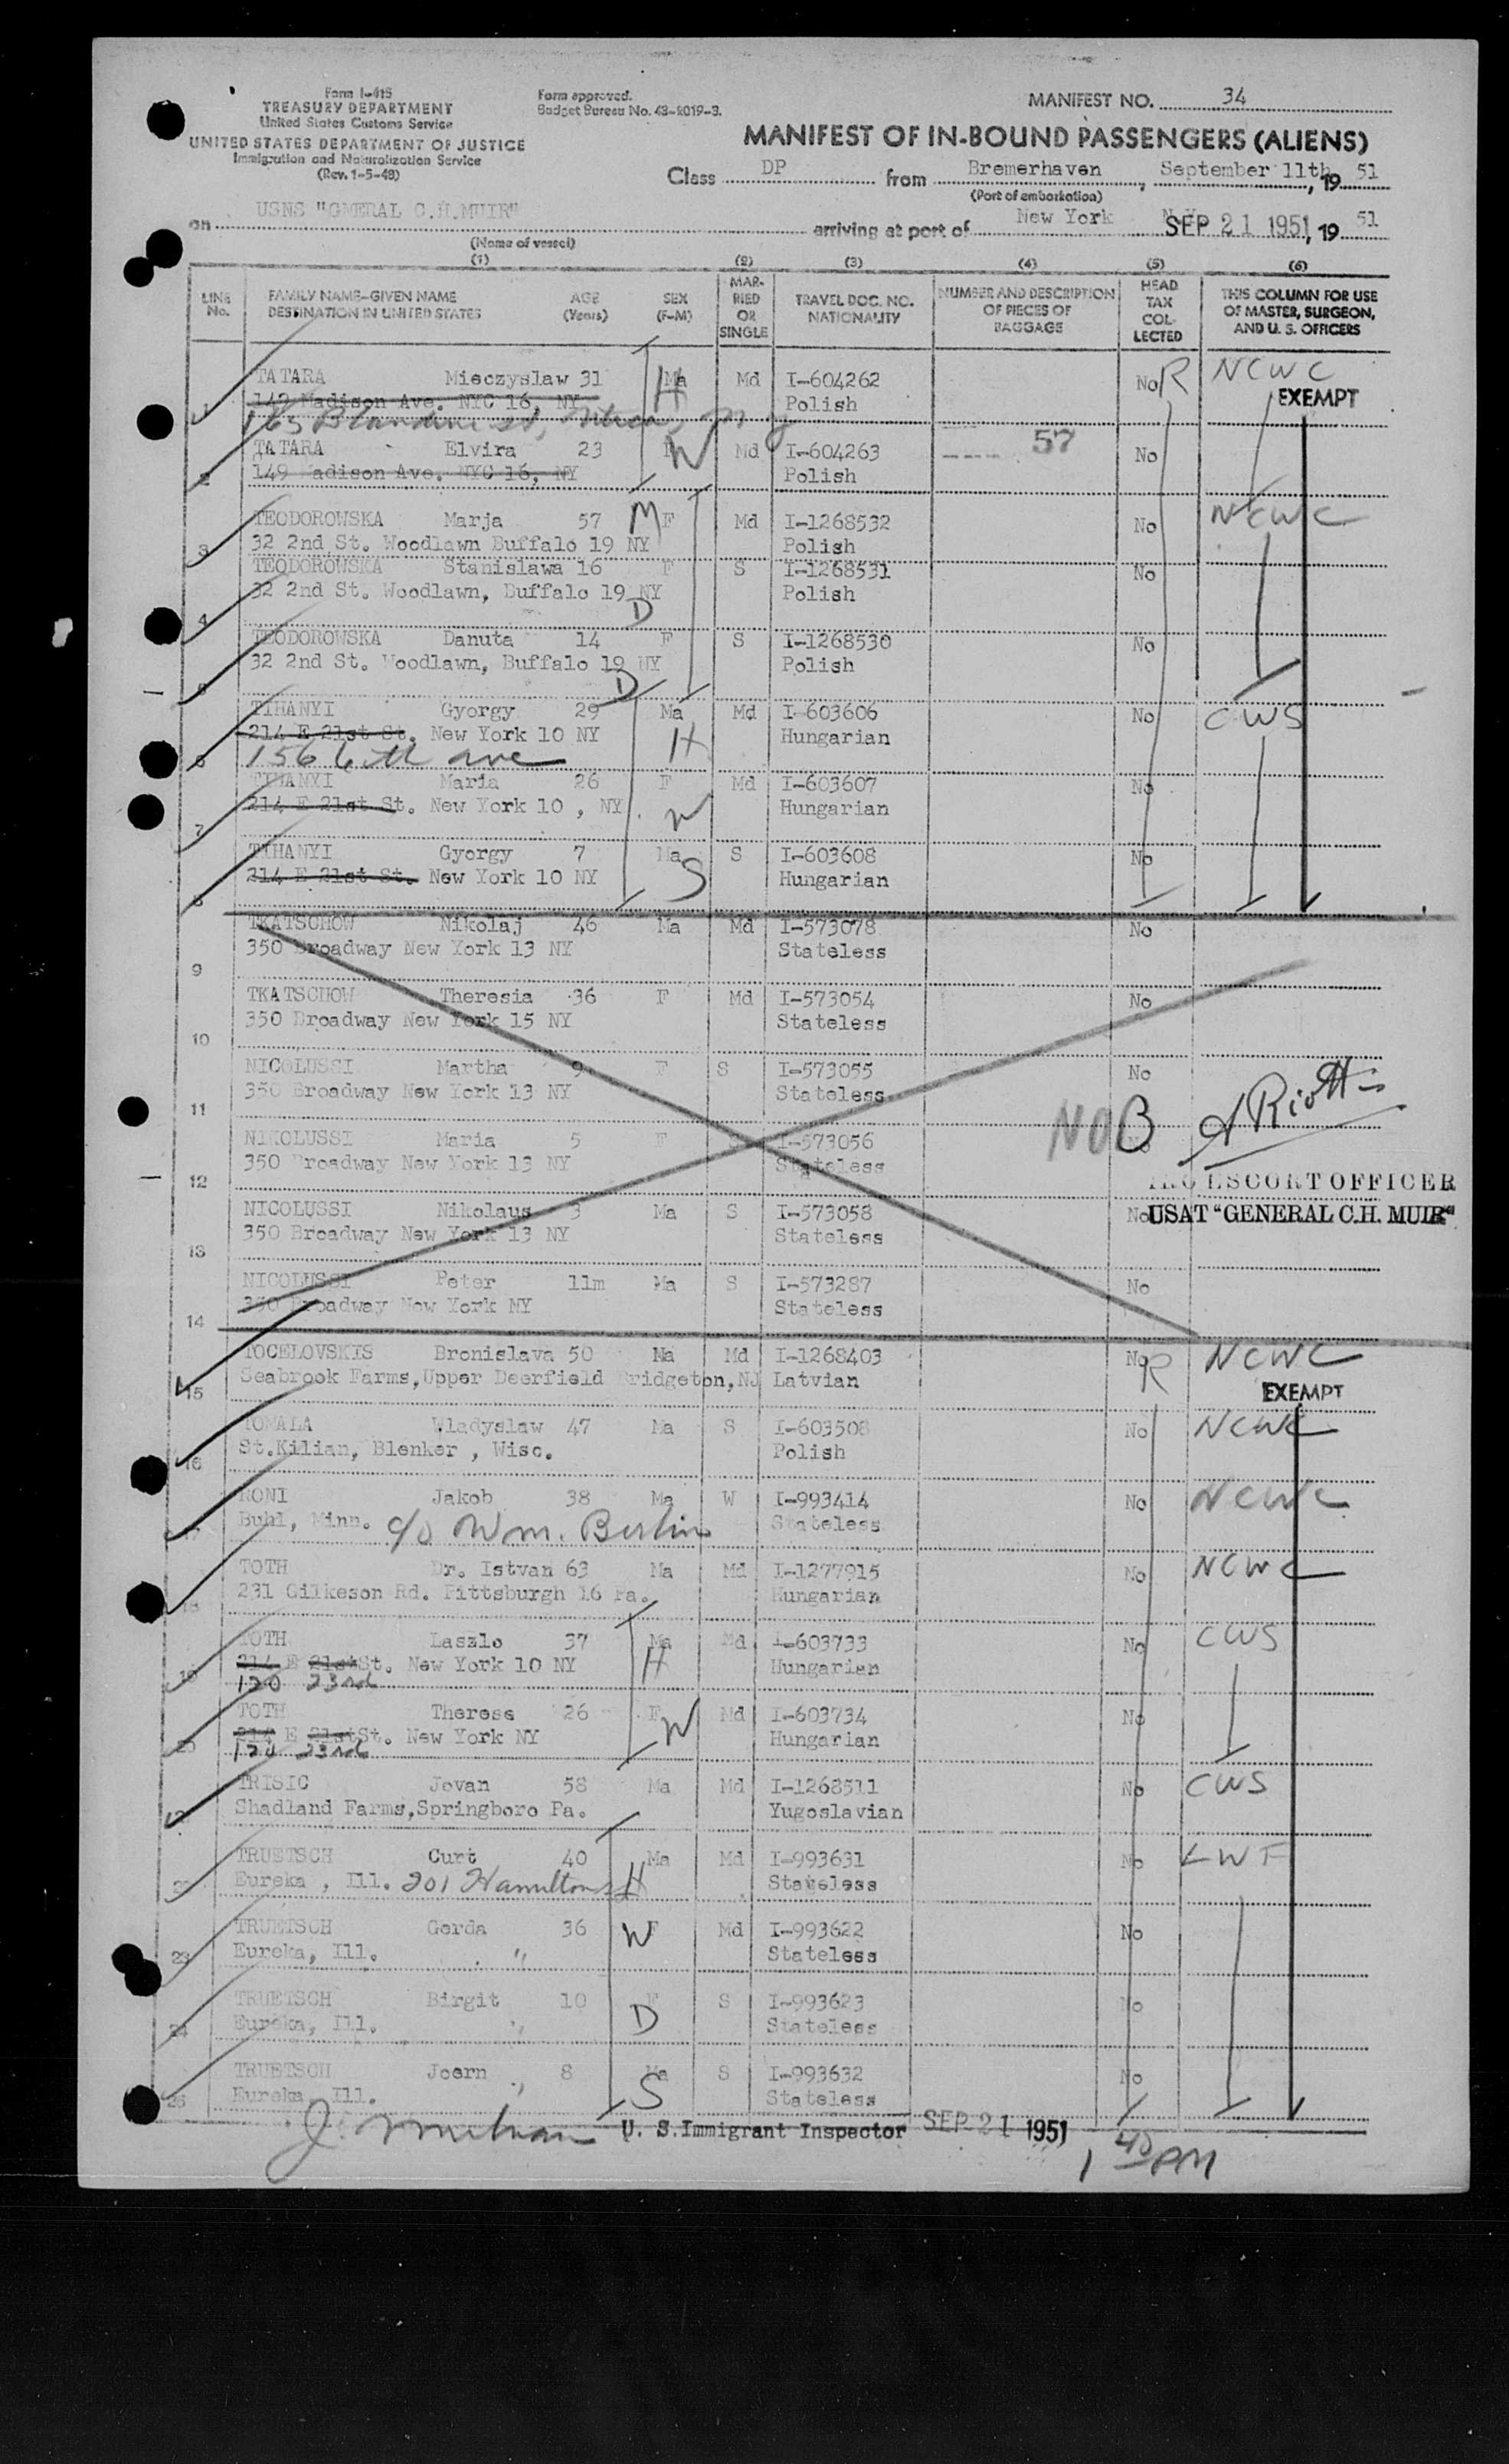 Form I-415
TREASURY DEPARTMENT
United States Customs Service
UNITED STATES DEPARTMENT OF JUSTICE
Immigration and Naturalization Service
(Rev. 1-5-48)
Form approved.
Budget Bureau No. 43-R019-3.
MANIFEST NO. 34
MANIFEST OF IN-BOUND PASSENGERS (ALIENS)
Class DP from Bremerhaven, September 11th, 19 51
(Port of embarkation)
on USNS "GNERAL C.H.MUIR" arriving at port of New York N.Y. SEP 21 1951, 19 51
(Name of vessel)
(1) (2) (3) (4) (5) (6)
LINE No. FAMILY NAME—GIVEN NAME DESTINATION IN UNITED STATES AGE (Years) SEX (F-M) MARRIED OR SINGLE TRAVEL DOC. NO. NATIONALITY NUMBER AND DESCRIPTION OF PIECES OF BAGGAGE HEAD TAX COLLECTED THIS COLUMN FOR USE OF MASTER, SURGEON, AND U. S. OFFICERS
TATARA Mieczyslaw 31 Ma H Md I-604262 No R NCWC
1 149 Madison Ave. NYC 16, NY Polish EXEMPT
163 St, Utica, N Y
TATARA Elvira 23 F W Md I-604263 57 No
2 149 adison Ave. NYC 16, NY Polish
TEODOROWSKA Marja 57 M F Md I-1268532 No NCWC
3 32 2nd St. Woodlawn Buffalo 19 NY Polish
TEODOROWSKA Stanislawa 16 F S I-1268531 No
4 32 2nd St. Woodlawn, Buffalo 19 NY D Polish
TEODOROWSKA Danuta 14 F S I-1268530 No
5 32 2nd St. Woodlawn, Buffalo 19 NY D Polish
TIHANYI Gyorgy 29 Ma Md I-603606 No CWS
214 E 21st St. New York 10 NY H Hungarian
6 156 6th ave
TIHANYI Maria 26 F Md I-603607 No
7 214 E 21st St. New York 10 , NY. W Hungarian
TIHANYI Gyorgy 7 Ma S I-603608 No
8 214 E 21st St. New York 10 NY S Hungarian
TKATSCHOW Nikolaj 46 Ma Md I-573078 No
9 350 Broadway New York 13 NY Stateless
TKATSCHOW Theresia 36 F Md I-573054 No
10 350 Broadway New York 15 NY Stateless
NICOLUSSI Martha 9 F S I-573055 No
11 350 Broadway New York 13 NY Stateless
NOB A Riotti
NIKOLUSSI Maria 5 F S I-573056
12 350 Broadway New York 13 NY Stateless
IRO ESCORT OFFICER
NICOLUSSI Nikolaus 3 Ma S I-573058 No USAT "GENERAL C.H. MUIR"
13 350 Broadway New York 13 NY Stateless
NICOLUSSI Peter 11m Ma S I-573287 No
14 350 Broadway New York NY Stateless
TOCELOVSKIS Bronislava 50 Ma Md I-1268403 No R NCWC
15 Seabrook Farms,Upper Deerfield Bridgeton,NJ Latvian EXEMPT
TOMALA Wladyslaw 47 Ma S I-603508 No NCWC
16 St.Kilian, Blenker , Wisc. Polish
RONI Jakob 38 Ma W I-993414 No NCWC
17 Buhl, Minn. c/o Wm. Berlin Stateless
TOTH Dr. Istvan 63 Ma Md I-1277915 No NCWC
18 231 Gilkeson Rd. Pittsburgh 16 Pa. Hungarian
TOTH Laszlo 37 Ma Md I-603733 No CWS
19 214 E 21st St. New York 10 NY H Hungarian
120 23rd
TOTH Theress 26 F W Md I-603734 No
20 214 E 21st St. New York NY Hungarian
120 23rd
TRISIC Jovan 58 Ma Md I-1268511 No CWS
21 Shadland Farms,Springboro Pa. Yugoslavian
TRUETSCH Curt 40 Ma Md I-993631 No LWF
22 Eureka , Ill. 201 Hamilton H Stateless
TRUETSCH Gerda 36 W F Md I-993622 No
23 Eureka, Ill. " Stateless
TRUETSCH Birgit 10 F S I-993623 No
24 Eureka, Ill. " D Stateless
TRUETSCH Joern 8 Ma S I-993632 No
25 Eureka, Ill. " S Stateless
U. S. Immigrant Inspector SEP 21 1951
1 40 PM